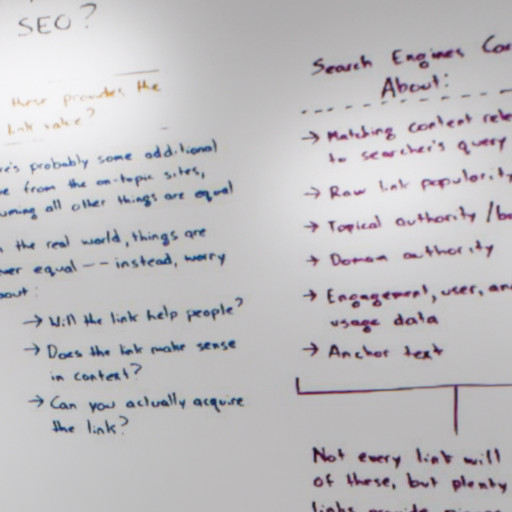 SEO?
these provides the
link value?
probably some additional
from the on-topic sites,
all other things are equal
the real world, things are
equal -- instead, worry
→ Will the link help people?
→ Does the link make sense
in context?
→ Can you actually acquire
the link?
Search Engines
About:
→ Matching content
to searcher's query
→ Raw link popularity
→ Topical authority /
→ Domain authority
→ Engagement, user, and
usage data
→ Anchor text
Not every link will
of these, but plenty
links provide